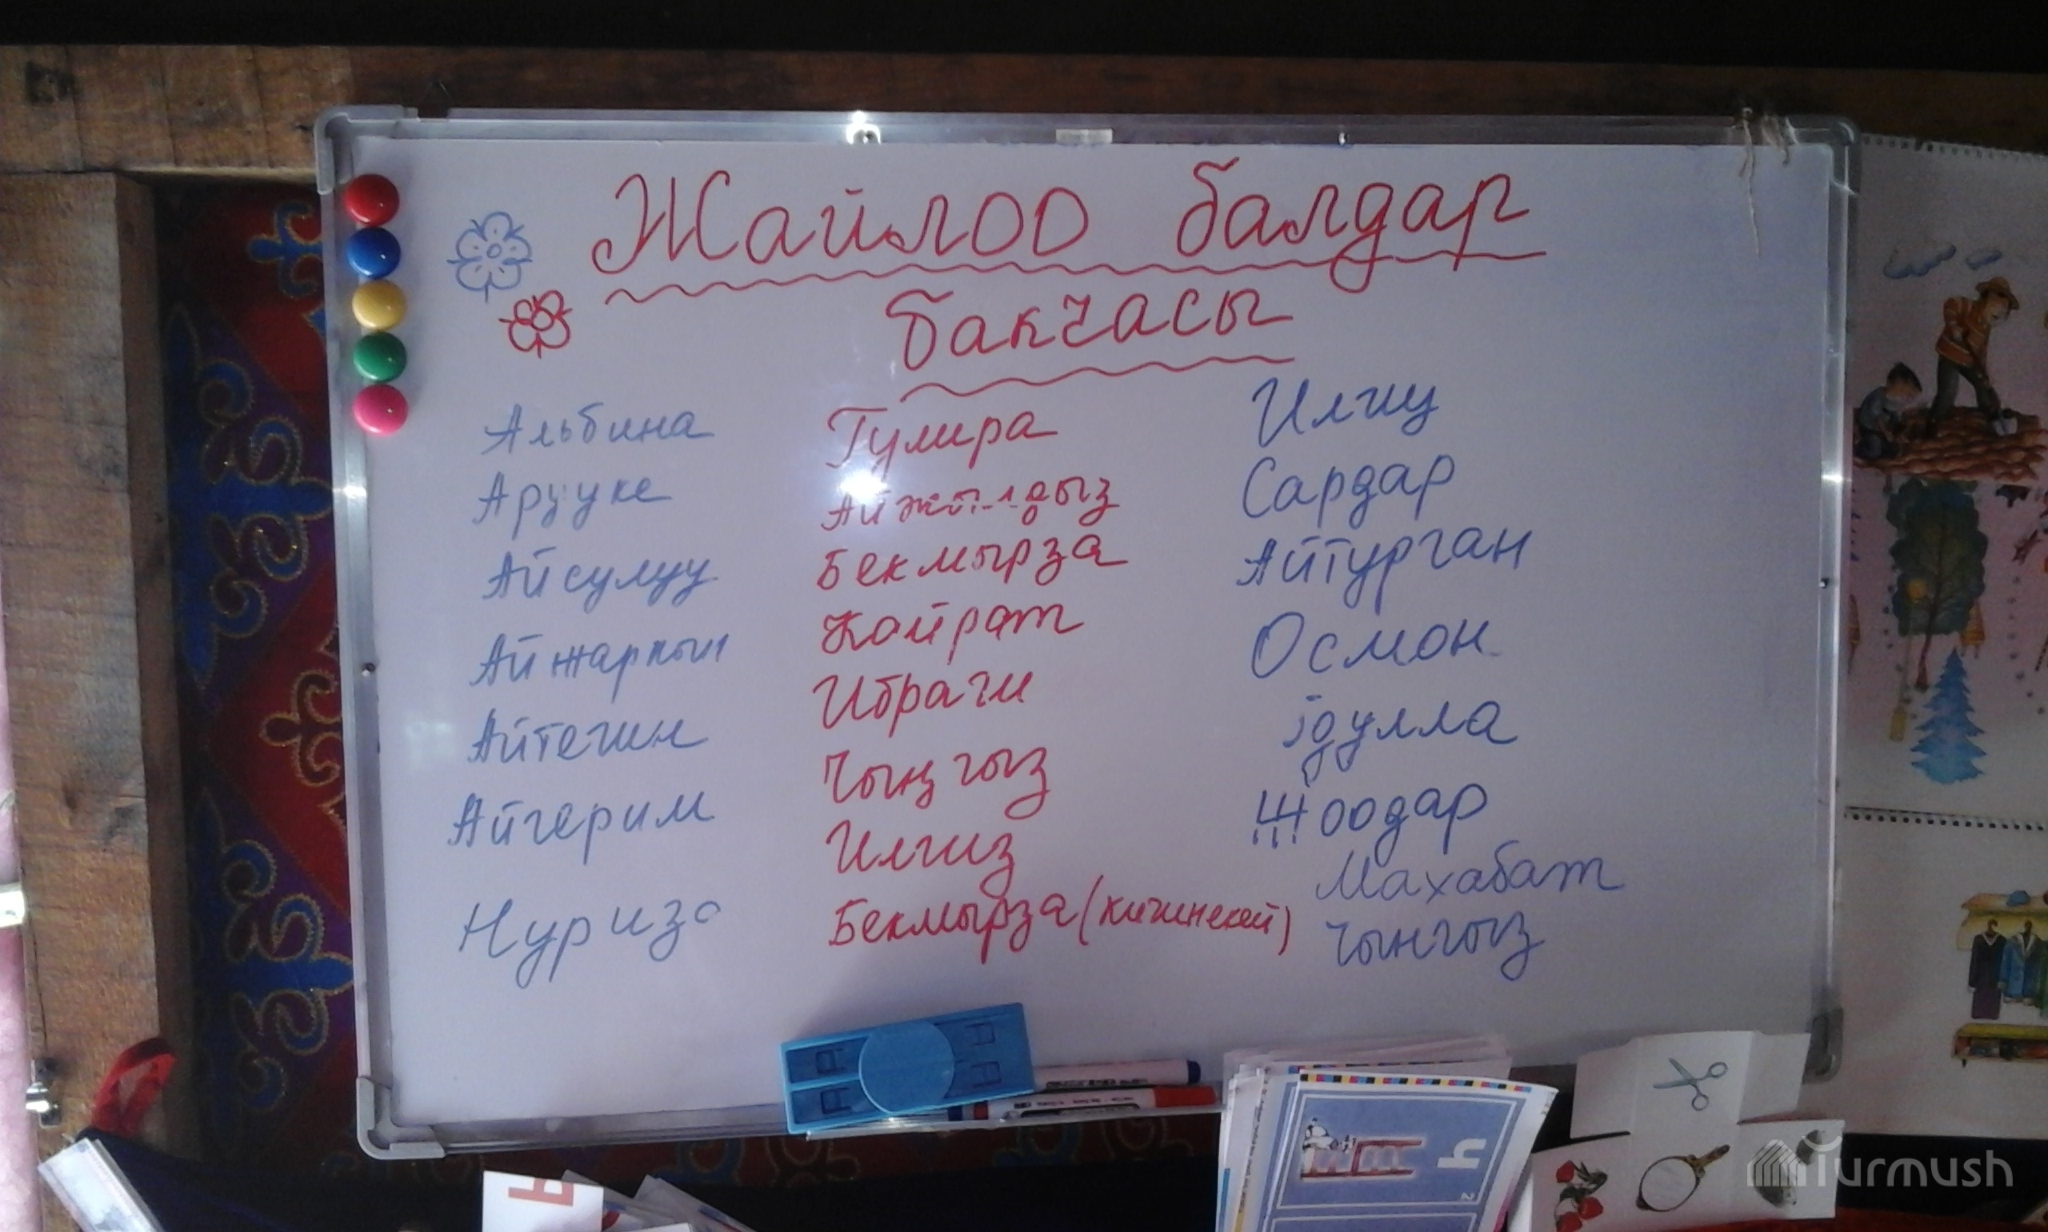 Жайлоо балдар
бакчасы
Альбина
Арууке
Айсулуу
Айжаркын
Айтегин
Айгерим
Нуриза
Гулира
Айжылдыз
Бекмырза
Кайрат
Ибраги
Чыңгыз
Илгиз
Бекмырза (кичинекей)
Илгиц
Сардар
Айтурган
Осмон
дулла
оодар
Махабат
Чынгыз
Ч
Turmush